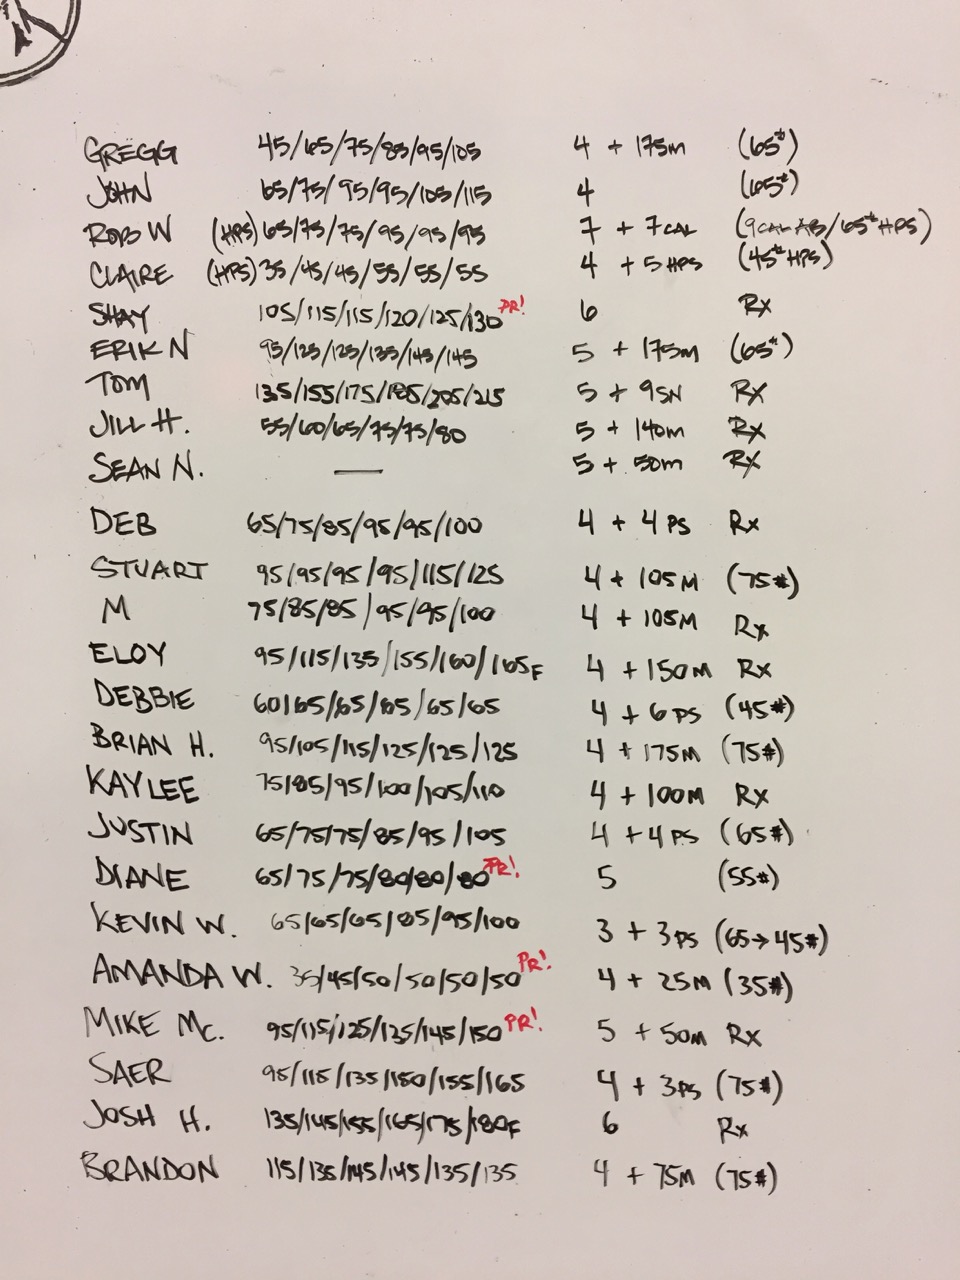 GREGG 45/65/75/85/95/105 4 + 175M (65#)
JOHN 65/75/95/95/105/115 4 (65#)
ROB W (HPS) 65/75/75/95/95/95 7 + 7 CAL (9 CAL AB/65# HPS)
CLAIRE (HPS) 35/45/45/55/55/55 4 + 5 HPS (45# HPS)
SHAY 105/115/115/120/125/130 PR! 6 Rx
ERIK N 95/125/125/135/145/145 5 + 175M (65#)
TOM 135/155/175/185/205/215 5 + 9SN RX
JILL H. 55/60/65/75/75/80 5 + 140M RX
SEAN N. — 5 + 50M RX
DEB 65/75/85/95/95/100 4 + 4 PS Rx
STUART 95/95/95/95/115/125 4 + 105M (75#)
M 75/85/85/95/95/100 4 + 105M Rx
ELOY 95/115/135/155/160/165F 4 + 150M Rx
DEBBIE 60/65/65/65/65/65 4 + 6 PS (45#)
BRIAN H. 95/105/115/125/125/125 4 + 175M (75#)
KAYLEE 75/85/95/100/105/110 4 + 100M Rx
JUSTIN 65/75/75/85/95/105 4 + 4 PS (65#)
DIANE 65/75/75/80/80/80 PR! 5 (55#)
KEVIN W. 65/65/65/85/95/100 3 + 3 PS (65→45#)
AMANDA W. 35/45/50/50/50/50 PR! 4 + 25M (35#)
MIKE MC. 95/115/125/135/145/150 PR! 5 + 50M Rx
SAER 95/115/135/150/155/165 4 + 3PS (75#)
JOSH H. 135/145/155/165/175/180F 6 Rx
BRANDON 115/135/145/145/135/135 4 + 75M (75#)